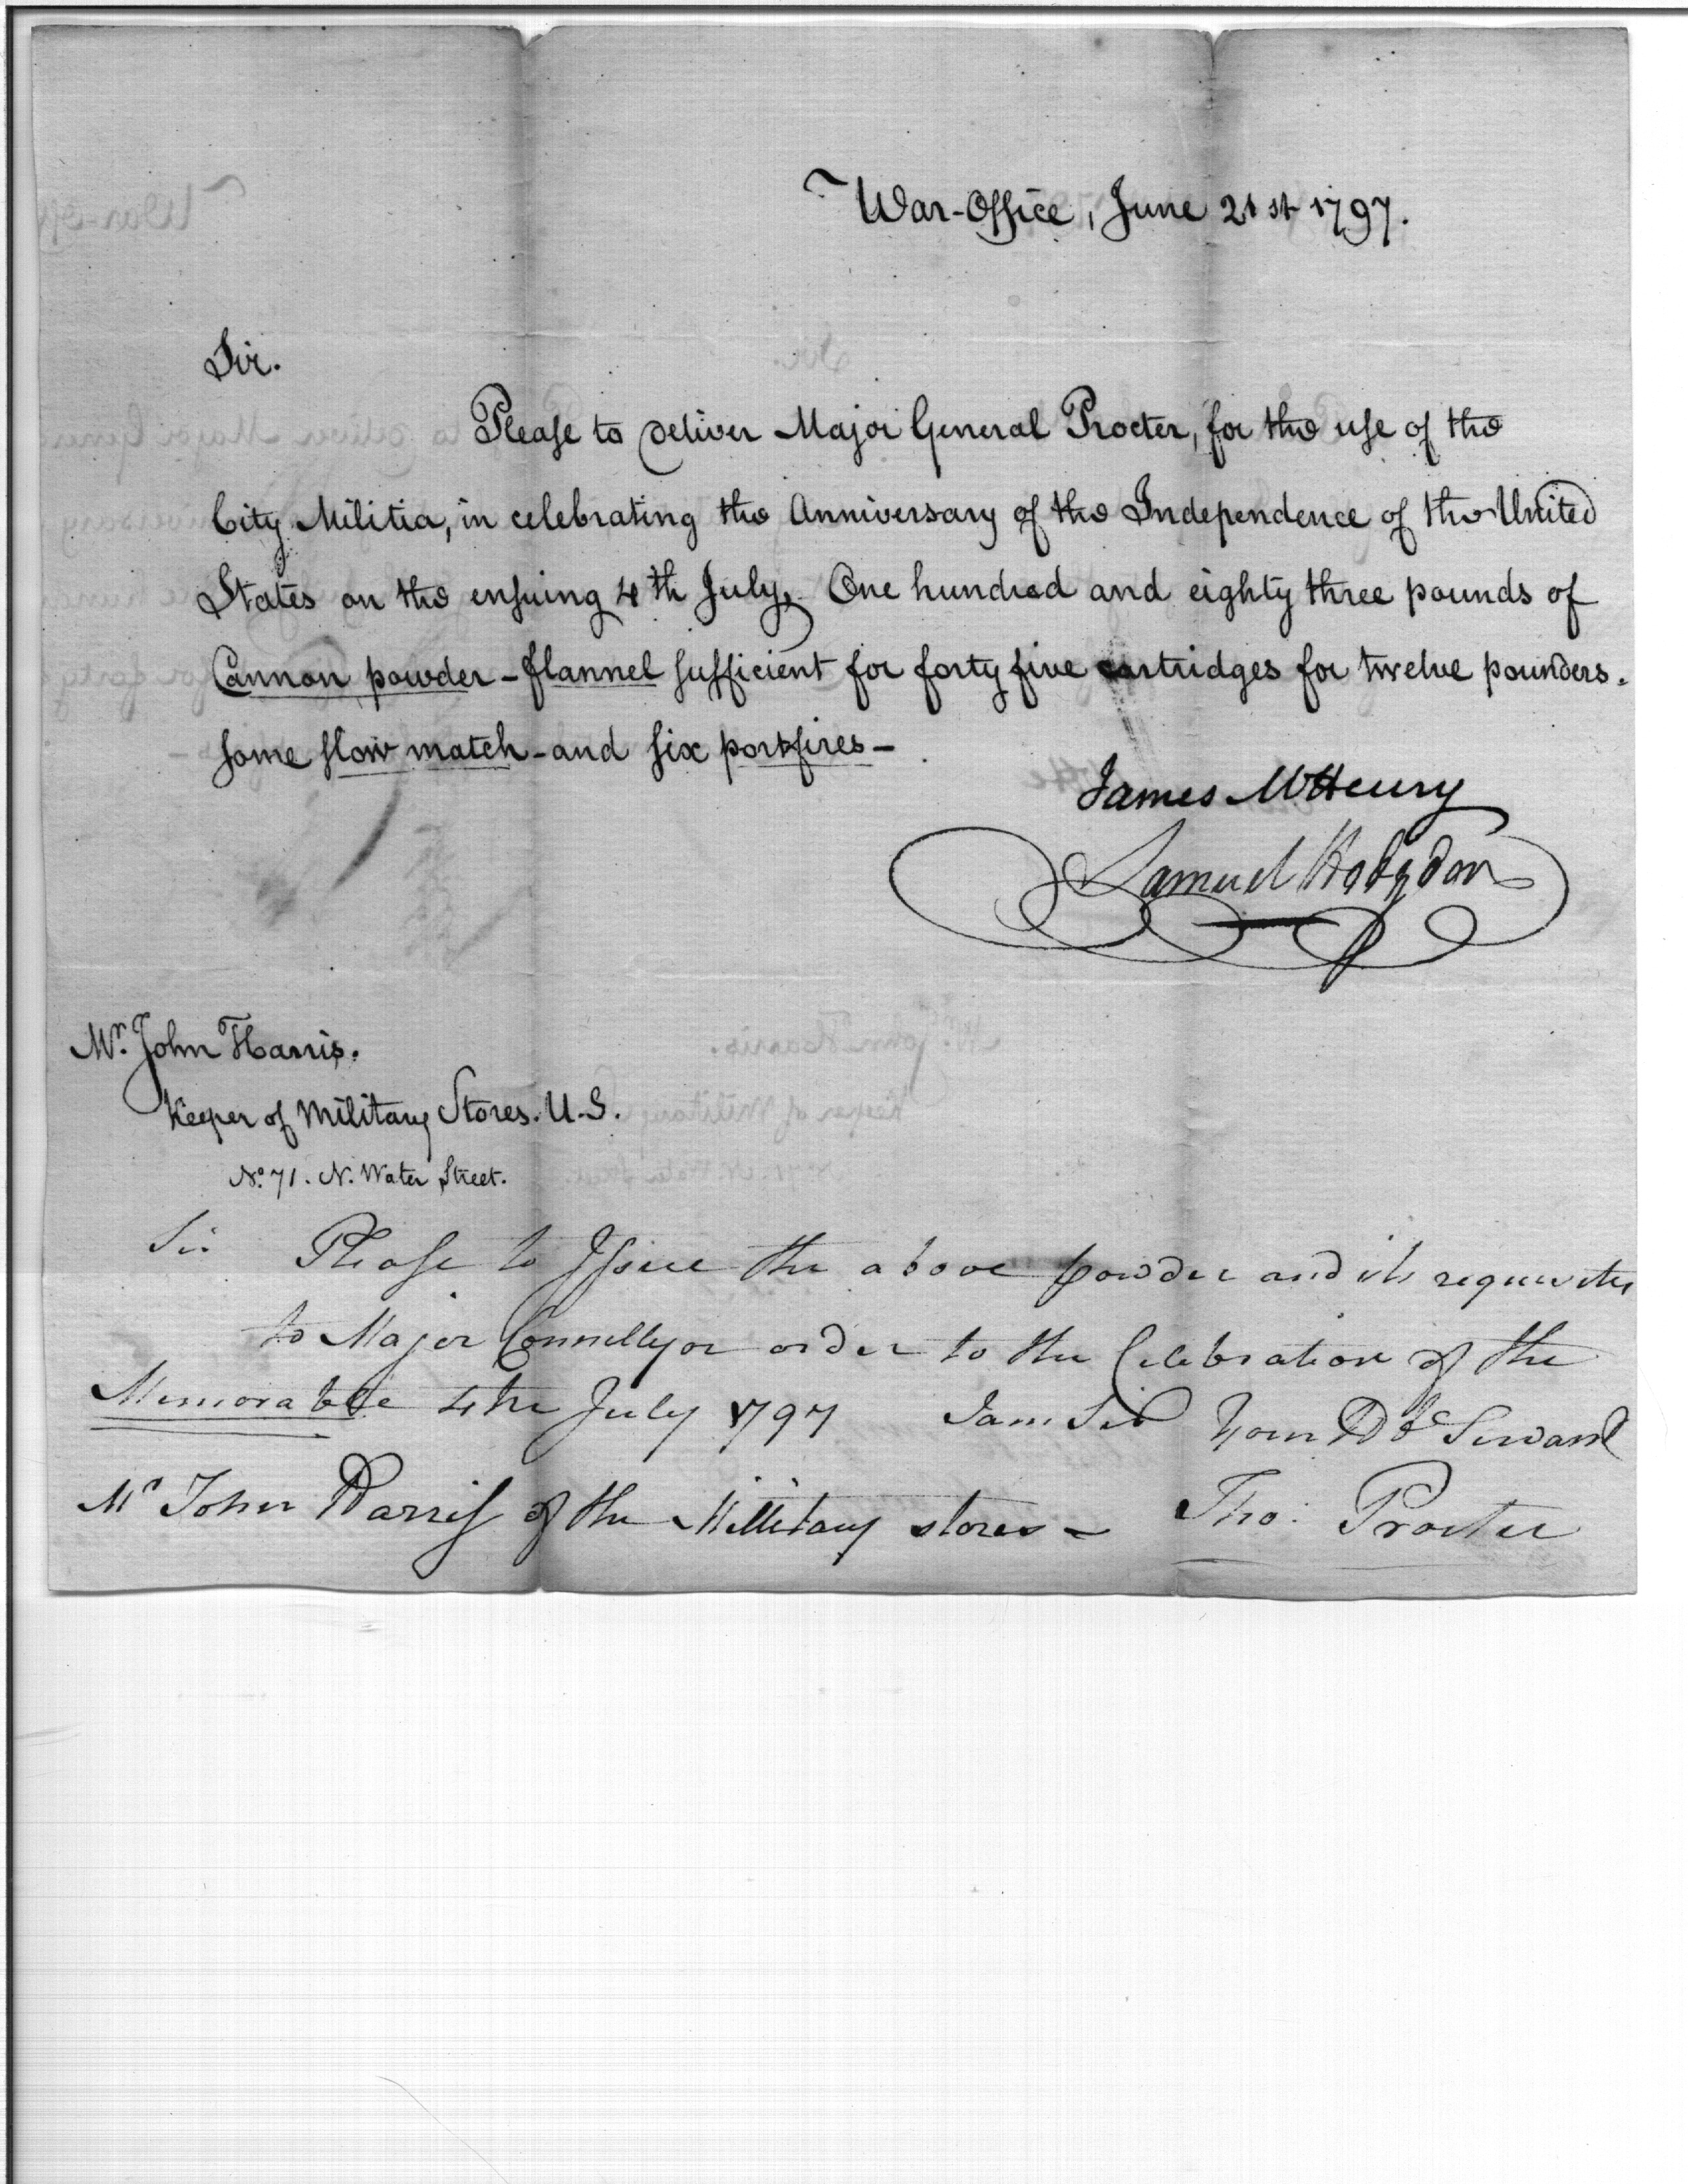 War-Office, June 21st 1797.
Sir.
Please to deliver Major General Procter, for the use of the
City Militia, in celebrating the Anniversary of the Independence of the United
States on the ensuing 4th July, One hundred and eighty three pounds of
Cannon powder - flannel sufficient for forty five cartridges for twelve pounders.
some slow match - and six portfires -
James McHenry
Samuel Hodgdon
Mr. John Harris.
Keeper of Military Stores. U.S.
No. 71. N. Water Street.
Sir Please to Issue the above powder and its requisites
to Major Connelly or order to the Celebration of the
Memorable 4th July 1797 I am Sir Your Servant
Mr John Harris of the Millitary stores - Tho: Procter